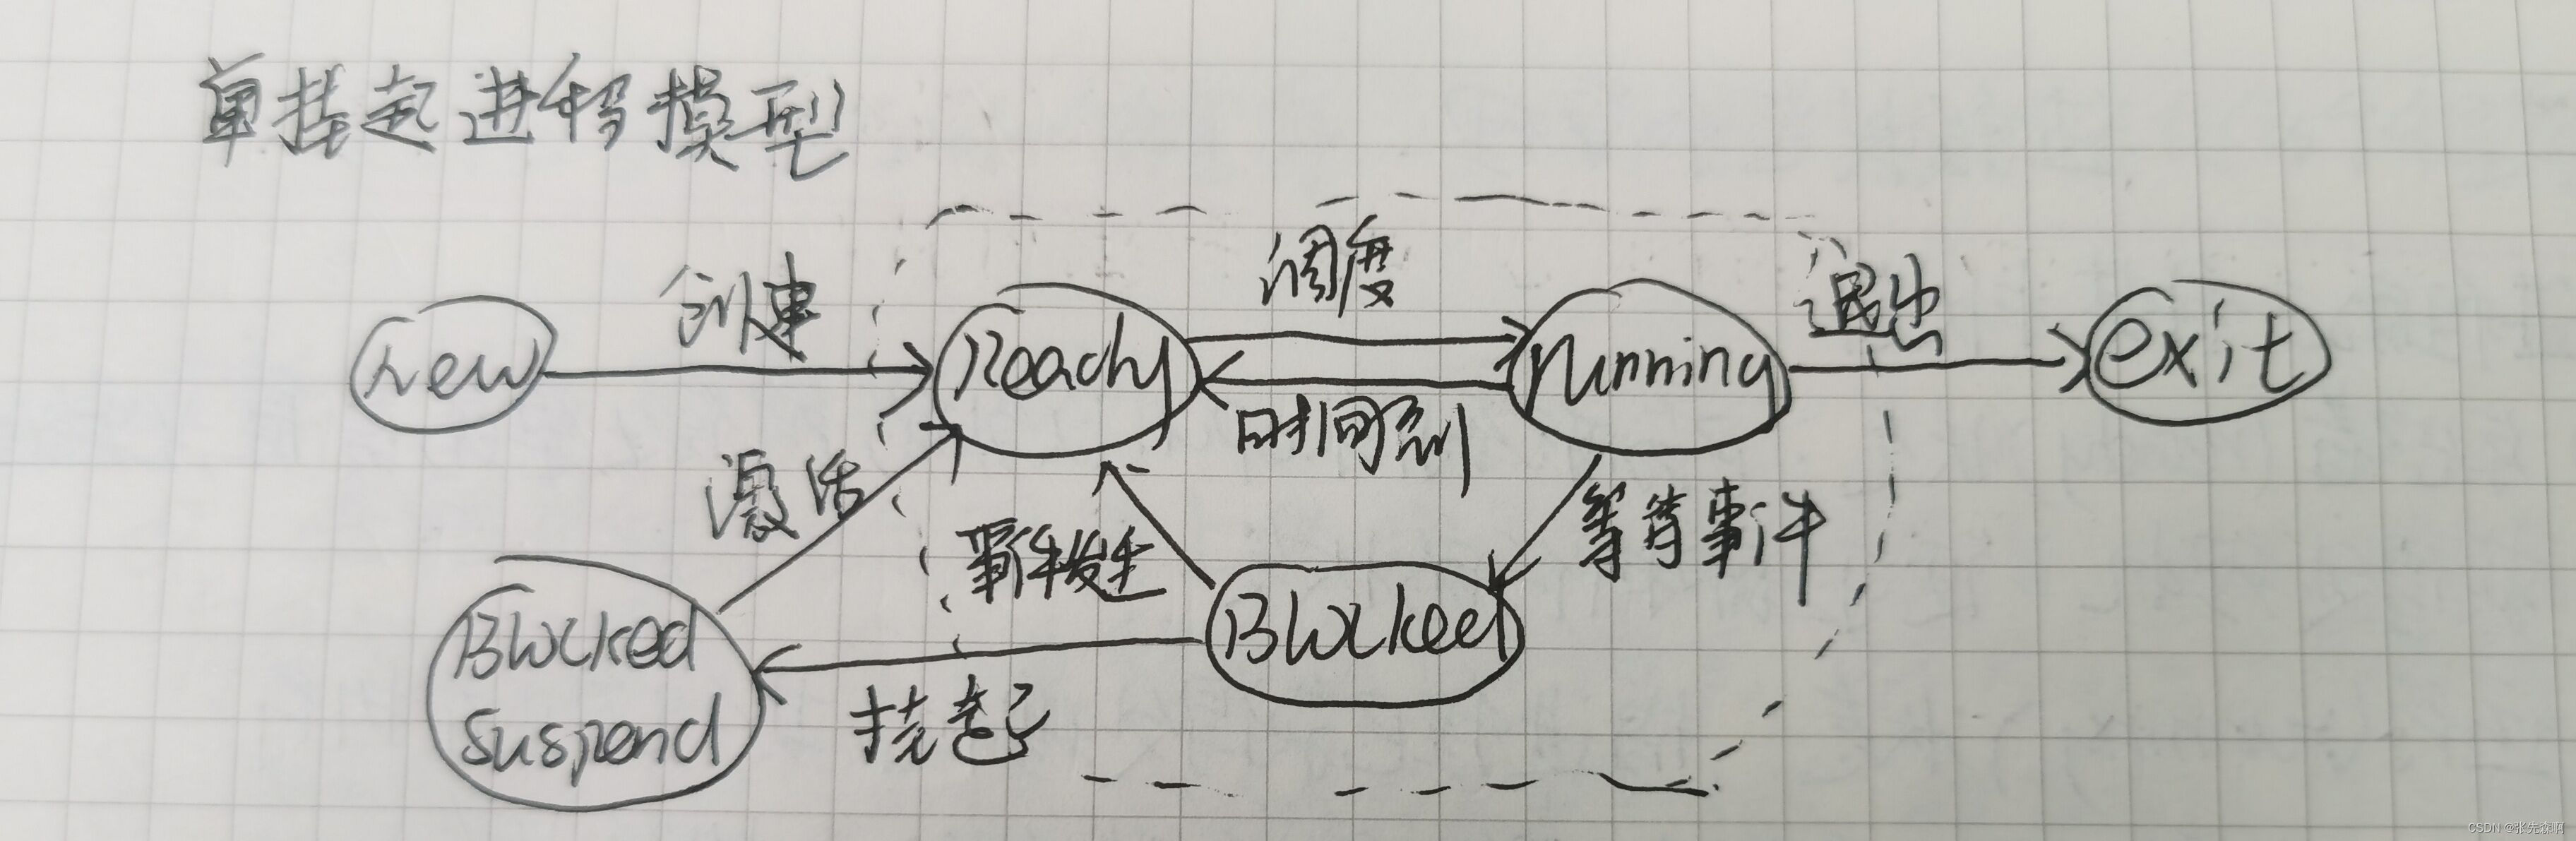 单挂起进程模型
调度
创建
退出
new
Ready
running
exit
时间到
激活
等等事件
事件发生
Blocked
Blocked
suspend
挂起
CSDN @张先森啊